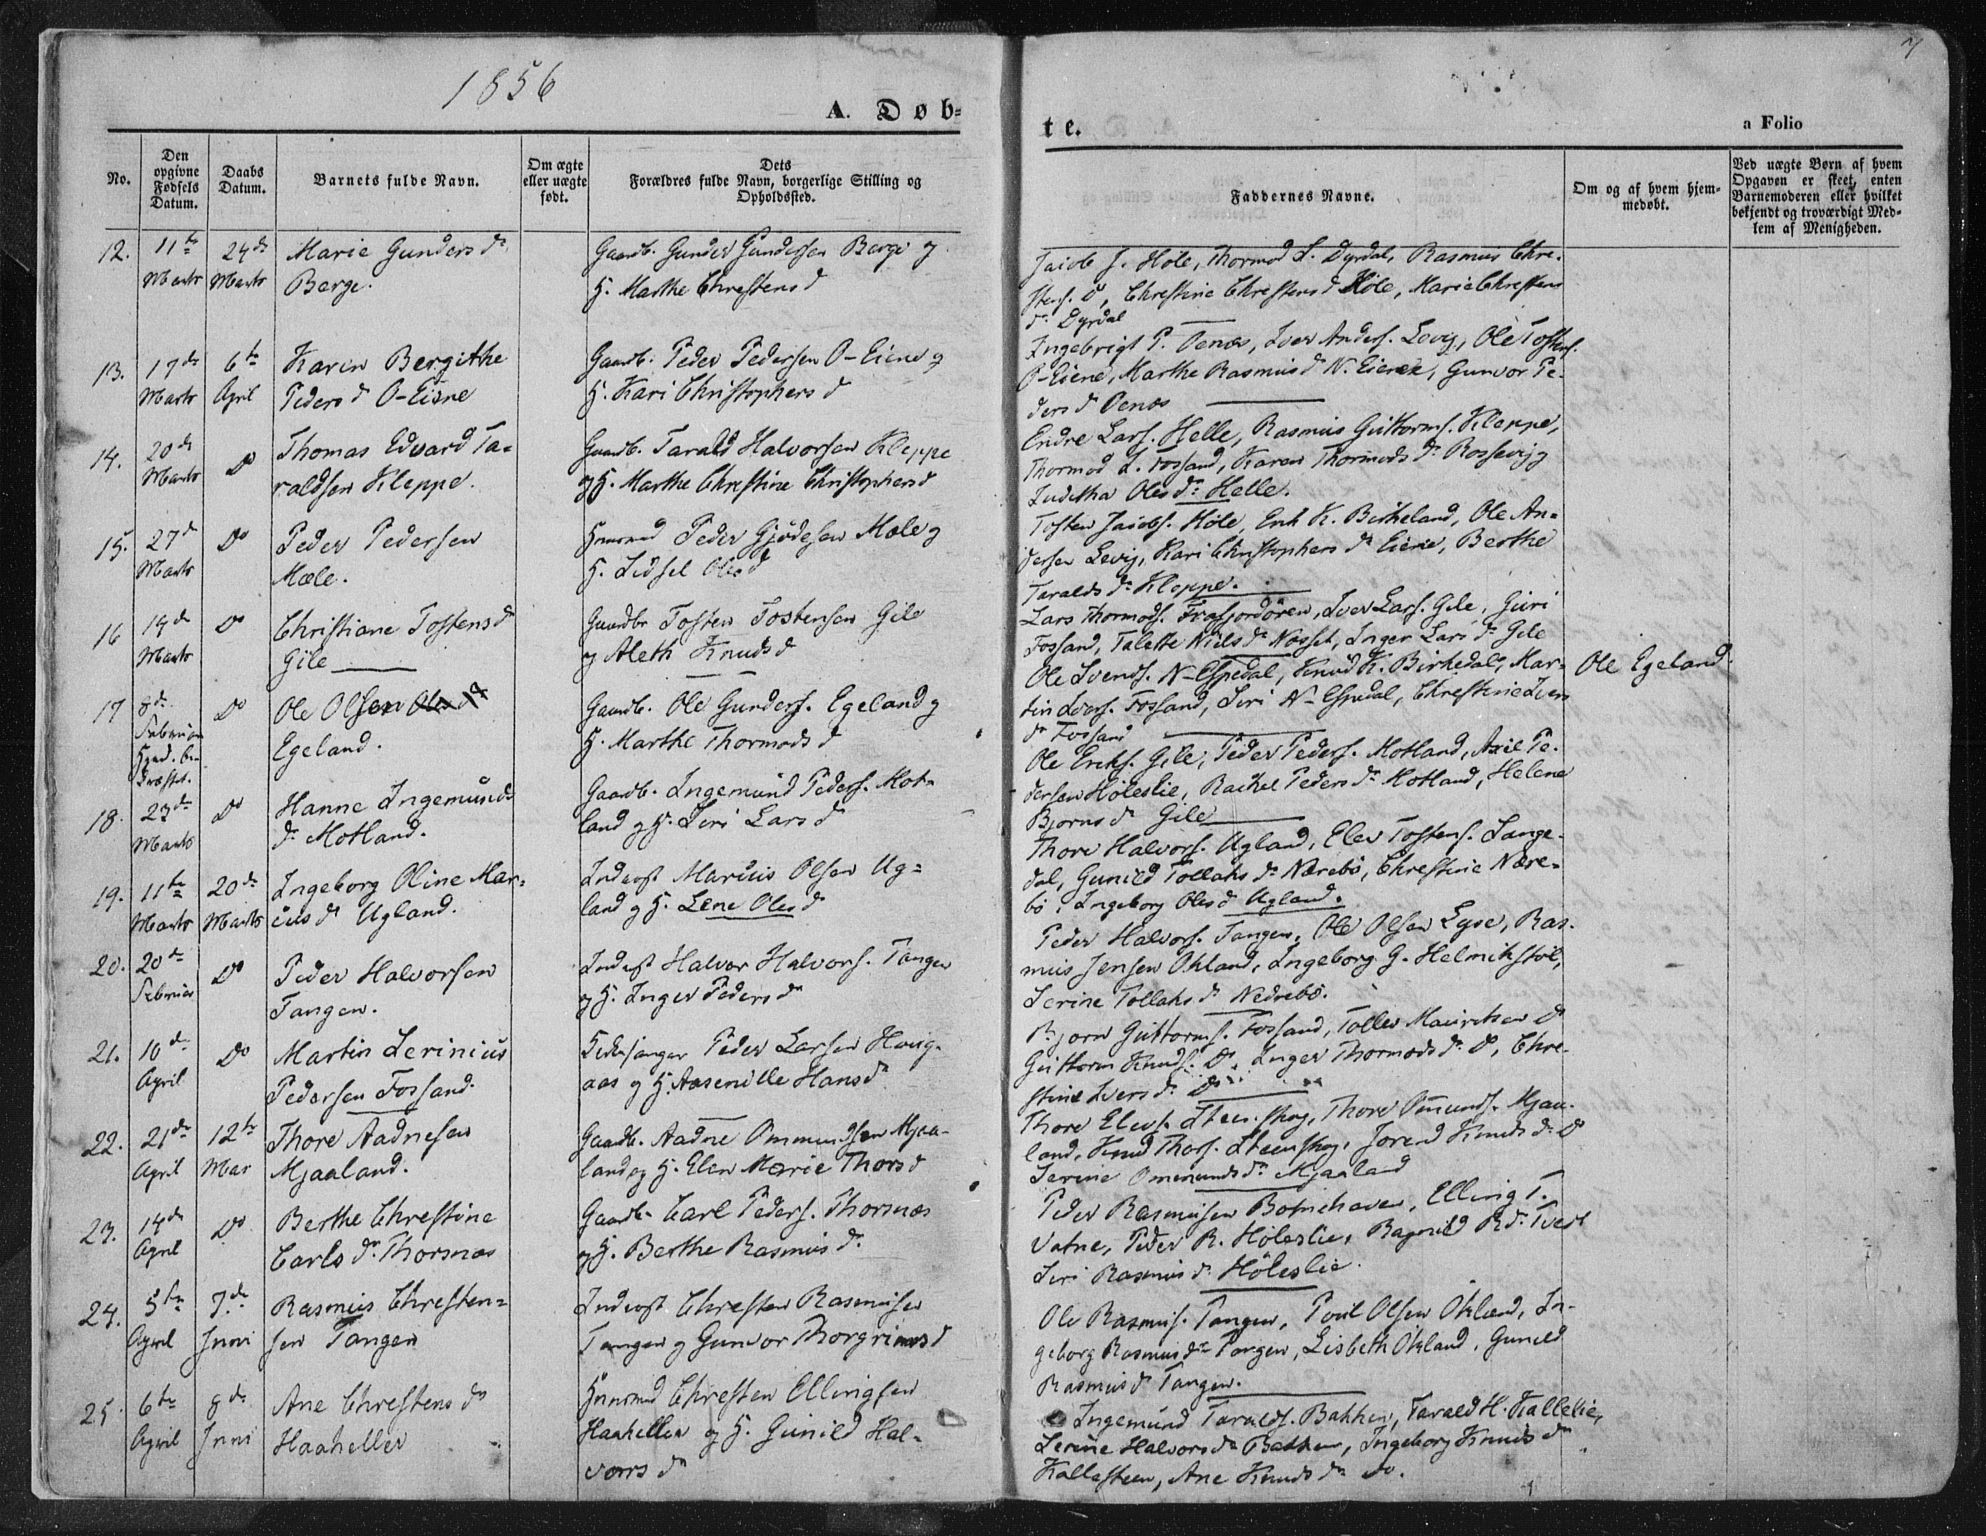 1856
7
A. Døb=
te.
a Folio
No.
Den opgivne Fødsels Datum.
Daabs Datum.
Barnets fulde Navn.
Om ægte eller uægte født.
Dets Forældres fulde Navn, borgerlige Stilling og Opholdssted.
Faddernes Navne.
Om og af hvem hjemmedøbt.
Ved uægte Børn af hvem Opgaven er skeet, enten Barnemoderen eller hvilket bekjendt og troværdigt Medlem af Menigheden.
12. 11te Marts 24de Marts
Marie Gunders d.
Berge.
Gaardb. Gunder Gundersen Berge og
H. Marthe Christens d
Jacob J. Høle, Thormod L. Dyrdal, Rasmus Chre-
stens. Do, Christine Christens d Høle, Marie Christens
d. Dyrdal
13. 17de Marts 6te April
Karin Bergithe
Peders d O-Eiene
Gaardb. Peder Pedersen O-Eiene og
H. Kari Christophers d
Ingebrigt P. Oenæs, Iver Anders. Levig, Ole Tostens.
O-Eiene, Marthe Rasmus d N. Eiene, Gunvor Pe-
ders d Oenæs
14. 20de Marts Do
Thomas Edvard Ta-
raldsen Kleppe.
Gaardb. Tarald Halvorsen Kleppe
og H. Marthe Christine Christophers d
Endre Lars. Helle, Rasmus Guttorms. Kleppe,
Thormod L. Fossand, Karen Thormods d. Rossevig
Juditha Oles d. Helle.
15. 27d Marts Do
Peder Pedersen
Mæle.
Huusmd Peder Gjødesen Mæle og
H. Sidsel Oles d
Tosten Jacobs. Høle, Erik K. Birkeland, Ole An-
dersen Levig, Kari Christophers d. Eiene, Berthe
Taralds d. Kleppe.
16 19d Marts Do
Christiane Tostens d
Gile
Gaardbr Tosten Tostensen Gile
og Aleth Knuds d
Lars Thormods. Frafjordøren, Iver Lars. Gile, Guri
Fossand, Talette Niels d. Næsset, Inger Lars d. Gile
17 8de Februar
Do
Ole Olsen
Egeland.
Gaardb. Ole Gunders. Egeland og
H. Marthe Thormods d
Ole Svends. N-Espedal, Knud K. Birkedal, Mar-
tin Ivers. Fossand, Siri N-Espedal, Christine Ivers
d. Fossand
Ole Egeland.
18. 23de Marts Do
Hanne Ingemunds
d. Motland.
Gaardb. Ingemund Peders. Mot-
land og H. Siri Lars d
Ole Eriks. Gile, Peder Peders. Motland, Axel Pe-
dersen Høleslie, Rachel Peders d. Motland, Helene
Bjorns d. Gile
19. 11te Marts 20de Marts
Ingeborg Oline Mar-
ius d. Ugland.
Inderst Marius Olsen Ug-
land og H. Lene Oles d
Thore Halvors. Ugland, Elev Tostens. Lange-
dal, Gunild Tollaks d. Nærebø, Christine Nære-
bø, Ingeborg Oles d Ugland.
20. 20de Februar Do
Peder Halvorsen
Tangen.
Inderst Halvor Halvors. Tangen
og H. Inger Peders d.
Peder Halvors. Tangen, Ole Olsen Lyse, Ras-
mus Jensen Økland, Ingeborg G. Helmikstøl,
Serine Tollaks d. Nedrebø.
21. 10de April Do
Martin Serinius
Pedersen Fossand.
Kirkesanger Peder Larsen Haug-
aas og H. Aasenille Hans d
Bjorn Guttorms. Fossand, Tollev Mauritsen Do
Guttorm Knuds. Do, Inger Thormods d. Do, Chre-
stine Ivers d. Do
22. 21de April 12te Mai
Thore Aadnesen
Mjaaland.
Gaardb. Aadne Ommundsen Mjaa-
land og H. Elen Marie Thors d
Thore Elevs. Steenskog, Thore Omunds. Mjaa-
land, Knud Thors. Steenskog, Jorend Knuds d. Do
Serine Ommunds d. Mjaaland
23. 14de April Do
Berthe Christine
Carls d. Thorsnæs
Gaardb. Carl Peders. Thorsnæs
og H. Berthe Rasmus d.
Peder Rasmusen Botnehaven, Elling T.
Vatne, Peder R. Høleslie, Ragnild R. d. Tveit
Siri Rasmus d. Høleslie.
24. 5te April 7de Juni
Rasmus Christen=
sen Tangen
Inderst Christen Rasmusen
Tangen og Gunvor Thorgrims d
Ole Rasmus. Tangen, Poul Olsen Økland, In-
geborg Rasmus d. Tangen, Lisbeth Økland, Gunild
Rasmus d. Tangen.
25. 6te April 8de Juni
Ane Christens d.
Haaheller
Huusmd Christen Ellingsen
Haaheller og H. Gunild Hal-
vors d.
Ingemund Taralds. Bakken, Tarald H. Kallelie,
Serine Halvors d. Bakken, Ingeborg Knuds d.
Kallesteen, Ane Knuds d. do.